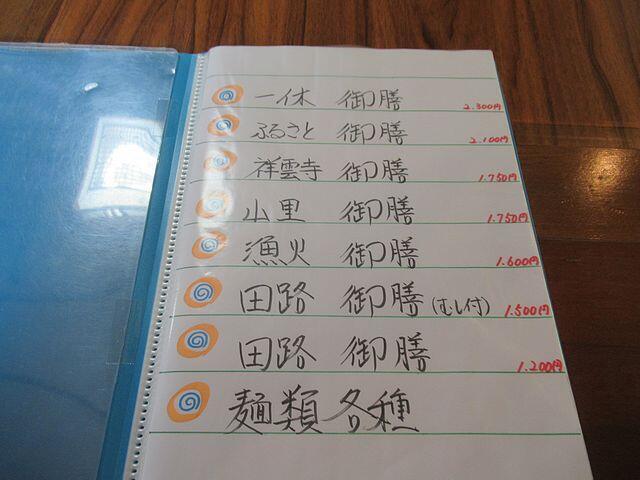 一休 御膳 2.300円
ふるさと 御膳 2.100円
祥雲寺 御膳 1.750円
山里 御膳 1.750円
漁火 御膳 1.600円
田路 御膳(むし付) 1.500円
田路 御膳 1.200円
麺類各種